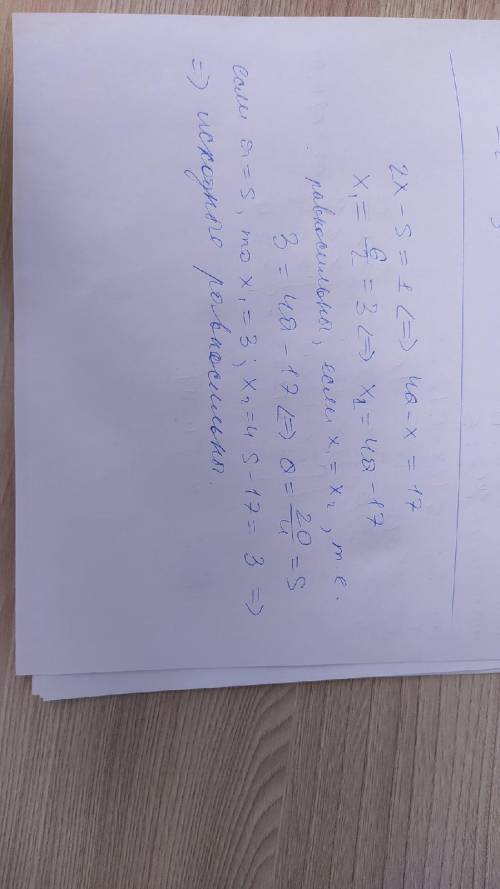 2x - 5 = 1 (=) 4a - x = 17
x₁ = 6/2 = 3 (=) x₂ = 4a - 17
равносильны, если x₁ = x₂, т.е.
3 = 4a - 17 (=) a = 20/4 = 5
если a = 5, то x₁ = 3; x₂ = 4·5 - 17 = 3 =>
=> исходные равносильны.